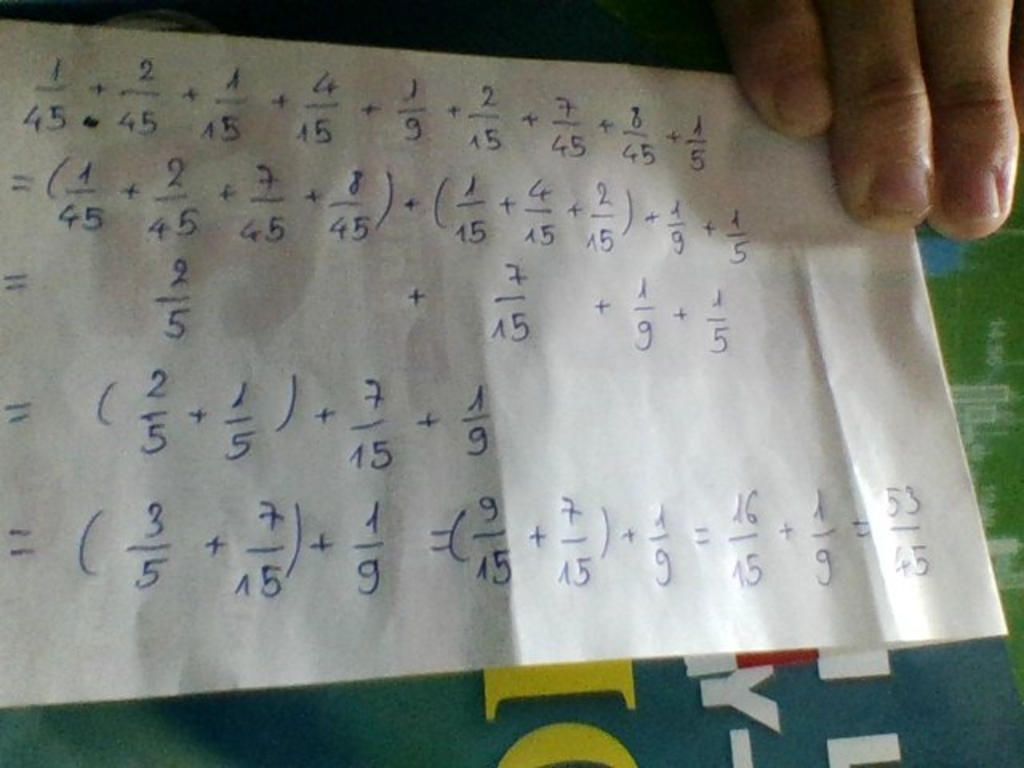 1/45 + 2/45 + 1/15 + 4/15 + 1/9 + 2/15 + 7/45 + 8/45 + 1/5
= (1/45 + 2/45 + 7/45 + 8/45) + (1/15 + 4/15 + 2/15) + 1/9 + 1/5
= 2/5 + 7/15 + 1/9 + 1/5
= (2/5 + 1/5) + 7/15 + 1/9
= (3/5 + 7/15) + 1/9 = (9/15 + 7/15) + 1/9 = 16/15 + 1/9 = 53/45